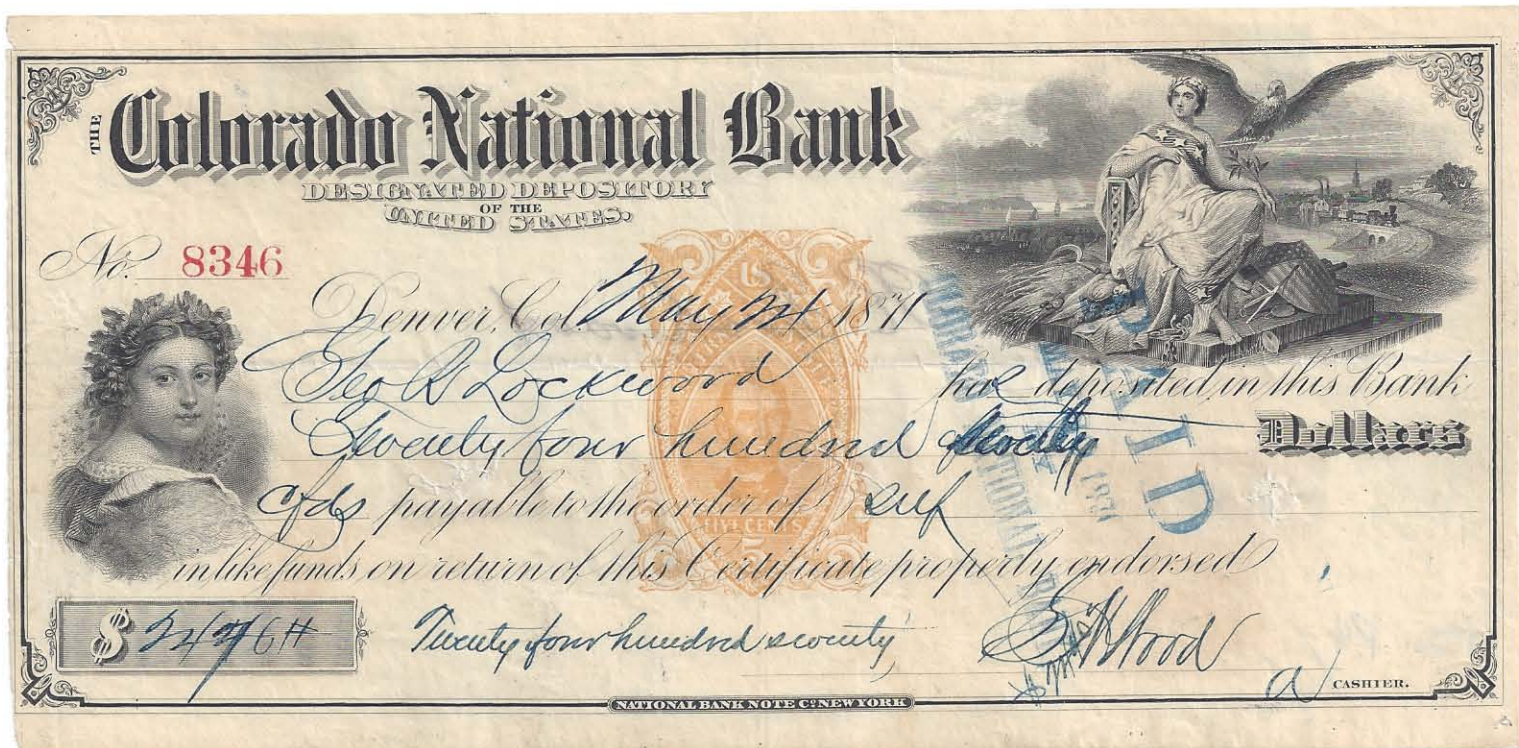 THE Colorado National Bank
DESIGNATED DEPOSITORY
OF THE
UNITED STATES.
No. 8346
Denver, Col. May 24 1871
Geo R Lockwood has deposited in this Bank
Twenty four hundred & seventy Dollars
cfds payable to the order of Self
in like funds on return of this Certificate properly endorsed
$
Twenty four hundred seventy
Wood
CASHIER.
NATIONAL BANK NOTE Co. NEW YORK
U S
FIVE CENTS
5
PAID
NATIONAL
1871